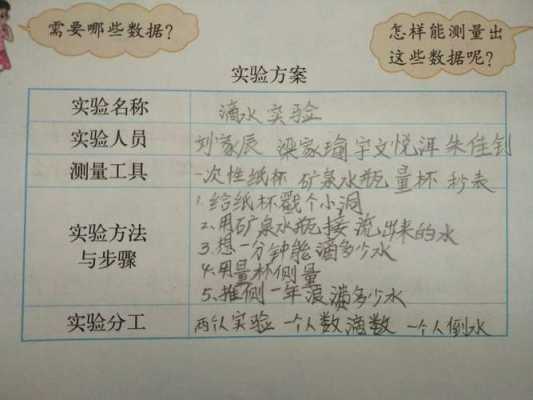 需要哪些数据?
怎样能测量出
这些数据呢?
实验方案
实验名称 滴水实验
实验人员 刘家辰 梁家瑜 宇文悦洱 朱佳钊
测量工具 一次性纸杯 矿泉水瓶 量杯 秒表
实验方法
与步骤
1.给纸杯戳个小洞
2.用矿泉水瓶接流出来的水
3.想一分钟能滴多少水
4.用量杯侧量
5.推侧一年浪滴多少水
实验分工 两个人实验 一个人数滴数 一个人倒水